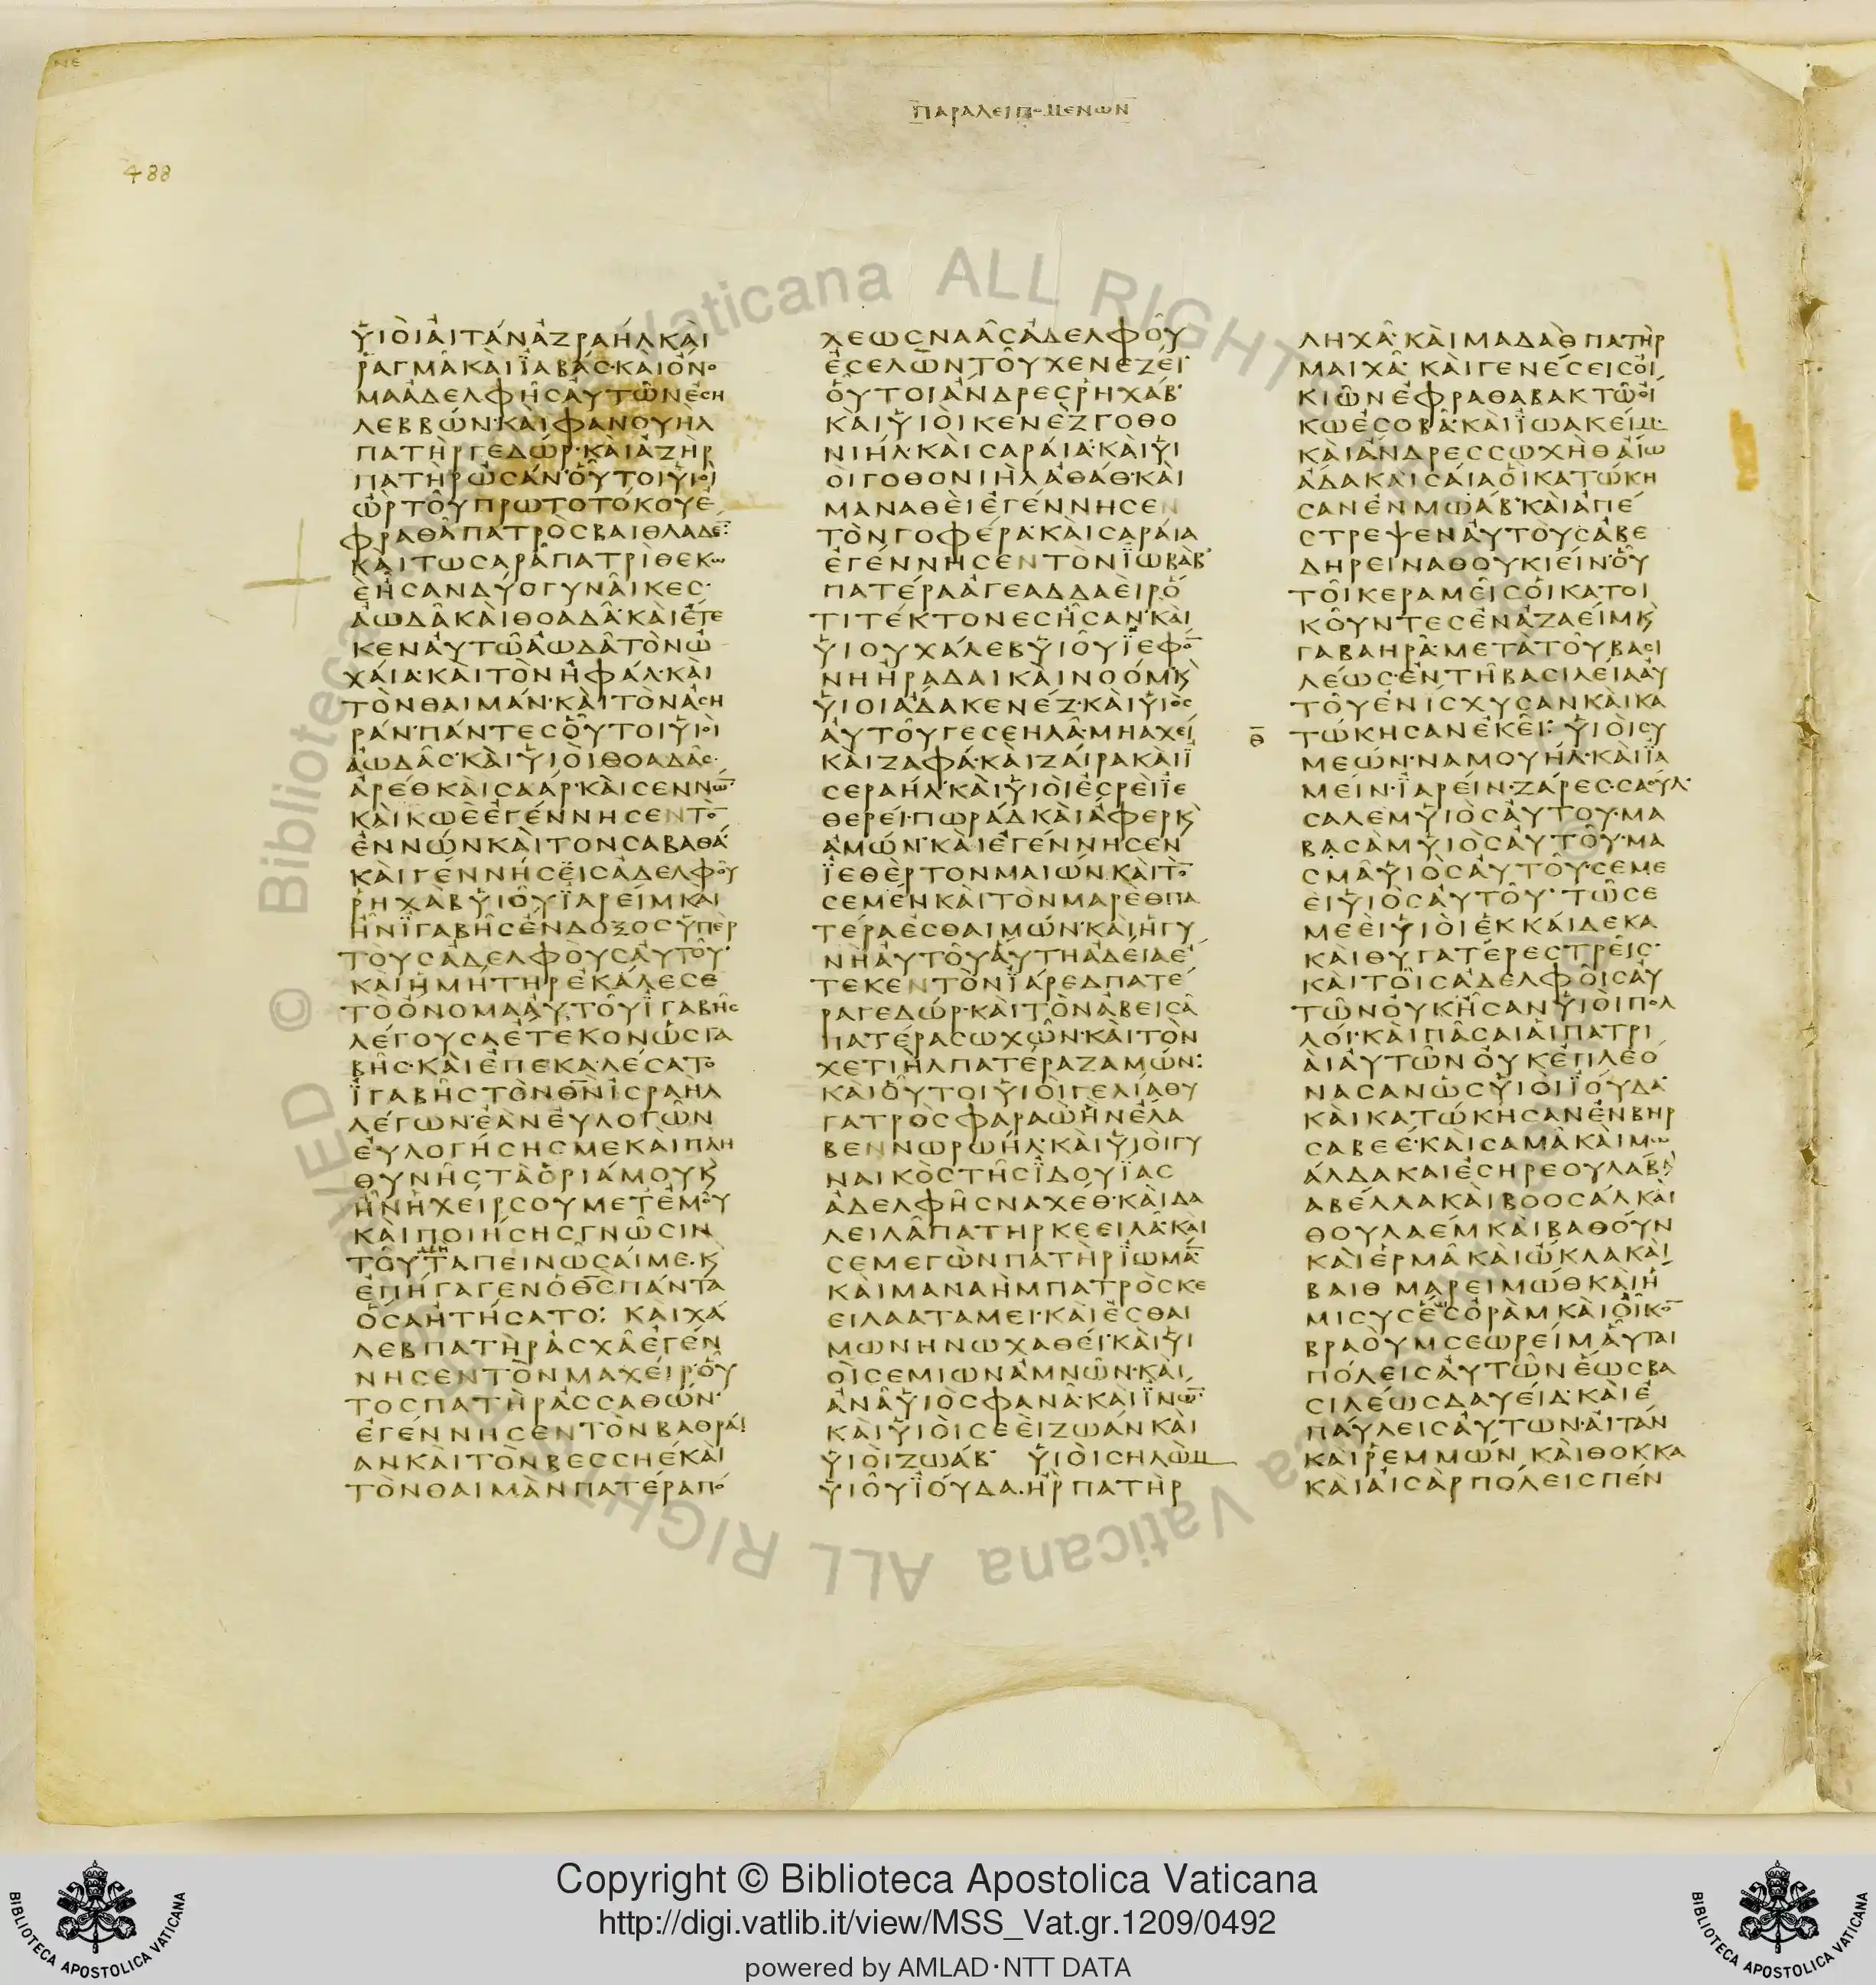 ΠΑΡΑΛΕΙΠΟΜΕΝΩΝ
488
ΥΙΟΙΑΙΤΑΝΑΖΡΑΗΛΚΑΙ
ΡΑΓΜΑΚΑΙΙΑΒΑΣ·ΚΑΙΟΝΟ
ΜΑΑΔΕΛΦΗΣΑΥΤΩΝΕΣΗ
ΛΕΒΒΩΝ·ΚΑΙΦΑΝΟΥΗΛ
ΠΑΤΗΡΓΕΔΩΡ·ΚΑΙΑΖΗΡ
ΠΑΤΗΡΩΣΑΝ·ΟΥΤΟΙΥΙΟΙ
ΩΡΤΟΥΠΡΩΤΟΤΟΚΟΥΕ
ΦΡΑΘΑΠΑΤΡΟΣΒΑΙΘΛΑΔΕ̄:
ΚΑΙΤΩΣΑΡΑΠΑΤΡΙΘΕΚΩ
ΕΗΣΑΝΔΥΟΓΥΝΑΙΚΕΣ·
ΑΩΔΑΚΑΙΘΟΑΔΑ·ΚΑΙΕΤΕ
ΚΕΝΑΥΤΩΑΩΔΑΤΟΝΩ
ΧΑΙΑ·ΚΑΙΤΟΝΗΦΑΛ·ΚΑΙ
ΤΟΝΘΑΙΜΑΝ·ΚΑΙΤΟΝΑΣΗ
ΡΑΝ·ΠΑΝΤΕΣΟΥΤΟΙΥΙΟΙ
ΑΩΔΑΣ·ΚΑΙΥΙΟΙΘΟΑΔΑΣ·
ΑΡΕΘΚΑΙΣΑΑΡ·ΚΑΙΣΕΝΝΩ̄·
ΚΑΙΚΩΕΕΓΕΝΝΗΣΕΝΤΟ̄
ΕΝΝΩΝΚΑΙΤΟΝΣΑΒΑΘΑ
ΚΑΙΓΕΝΝΗΣΕΙΣΑΔΕΛΦΟΥ
ΡΗΧΑΒΥΙΟΥΙΑΡΕΙΜΚΑΙ
ΗΝΙΓΑΒΗΣΕΝΔΟΞΟΣΥΠΕΡ
ΤΟΥΣΑΔΕΛΦΟΥΣΑΥΤΟΥ·
ΚΑΙΗΜΗΤΗΡΕΚΑΛΕΣΕ
ΤΟΟΝΟΜΑΑΥΤΟΥΙΓΑΒΗΣ
ΛΕΓΟΥΣΑΕΤΕΚΟΝΩΣΓΑ
ΒΗΣ·ΚΑΙΕΠΕΚΑΛΕΣΑΤΟ
ΙΓΑΒΗΣΤΟΝΘ̄Ν̄ΙΣΡΑΗΛ
ΛΕΓΩΝ·ΕΑΝΕΥΛΟΓΩΝ
ΕΥΛΟΓΗΣΗΣΜΕΚΑΙΠΛΗ
ΘΥΝΗΣΤΑΟΡΙΑΜΟΥΚ
ΗΝΗΧΕΙΡΣΟΥΜΕΤΕΜΟΥ
ΚΑΙΠΟΙΗΣΗΣΓΝΩΣΙΝ
ΤΟΥΤΑΠΕΙΝΩΣΑΙΜΕ·Κ
ΕΠΗΓΑΓΕΝΟΘ̄Σ̄ΠΑΝΤΑ
ΟΣΑΗΤΗΣΑΤΟ: ΚΑΙΧΑ
ΛΕΒΠΑΤΗΡΑΣΧΑΕΓΕΝ
ΝΗΣΕΝΤΟΝΜΑΧΕΙΡ·ΟΥ
ΤΟΣΠΑΤΗΡΑΣΣΑΘΩΝ·
ΕΓΕΝΝΗΣΕΝΤΟΝΒΑΘΡΑΙ
ΑΝΚΑΙΤΟΝΒΕΣΣΗΕΚΑΙ
ΤΟΝΘΑΙΜΑΝΠΑΤΕΡΑΠΟ
ΛΕΩΣΝΑΑΣΑΔΕΛΦΟΥ
ΕΣΕΛΩΝΤΟΥΧΕΝΕΖΕΙ·
ΟΥΤΟΙΑΝΔΡΕΣΡΗΧΑΒ·
ΚΑΙΥΙΟΙΚΕΝΕΖΓΟΘΟ
ΝΙΗΛ·ΚΑΙΣΑΡΑΙΑ·ΚΑΙΥΙ
ΟΙΓΟΘΟΝΙΗΛΑΘΑΘ·ΚΑΙ
ΜΑΝΑΘΕΙΕΓΕΝΝΗΣΕΝ
ΤΟΝΓΟΦΕΡΑ·ΚΑΙΣΑΡΑΙΑ
ΕΓΕΝΝΗΣΕΝΤΟΝΙΩΒΑΒ·
ΠΑΤΕΡΑΑΓΕΑΔΔΑΕΙΡΟ
ΤΙΤΕΚΤΟΝΕΣΗΣΑΝ·ΚΑΙ
ΥΙΟΥΧΑΛΕΒΥΙΟΥΙΕΦΟ̄
ΝΗΗΡΑΔΑΙΚΑΙΝΟΟΜ·Κ
ΥΙΟΙΑΔΑΚΕΝΕΖ·ΚΑΙΥΙΟΣ
ΑΥΤΟΥΓΕΣΕΗΛΑ·ΜΗΑΧΕΙ
ΚΑΙΖΑΦΑ·ΚΑΙΖΑΙΡΑΚΑΙΙ
ΣΕΡΑΗΛ·ΚΑΙΥΙΟΙΕΣΡΕΙΙΕ
ΘΕΡΕΙ·ΠΩΡΑΔΚΑΙΑΦΕΡΚ
ΑΜΩΝ·ΚΑΙΕΓΕΝΝΗΣΕΝ
ΙΕΘΕΡΤΟΝΜΑΙΩΝ·ΚΑΙΤΟ̄
ΣΕΜΕΝΚΑΙΤΟΝΜΑΡΕΘΠΑ
ΤΕΡΑΕΣΘΑΙΜΩΝ·ΚΑΙΗΓΥ
ΝΗΑΥΤΟΥΑΥΤΗΑΔΕΙΑΕ
ΤΕΚΕΝΤΟΝΙΑΡΕΔΠΑΤΕ
ΡΑΓΕΔΩΡ·ΚΑΙΤΟΝΑΒΕΙΣΑ
ΠΑΤΕΡΑΣΩΧΩΝ·ΚΑΙΤΟΝ
ΧΕΤΙΗΛΠΑΤΕΡΑΖΑΜΩΝ:
ΚΑΙΟΥΤΟΙΥΙΟΙΓΕΛΙΑΘΥ
ΓΑΤΡΟΣΦΑΡΑΩΗΝΕΛΑ
ΒΕΝΝΩΡΩΗΛ·ΚΑΙΥΙΟΙΓΥ
ΝΑΙΚΟΣΤΗΣΙΔΟΥΙΑΣ
ΑΔΕΛΦΗΣΝΑΧΕΘ·ΚΑΙΔΑ
ΛΕΙΛΑΠΑΤΗΡΚΕΕΙΛΑ·ΚΑΙ
ΣΕΜΕΓΩΝΠΑΤΗΡΙΩΜᾹ·
ΚΑΙΜΑΝΑΗΜΠΑΤΡΟΣΚΕ
ΕΙΛΑΑΤΑΜΕΙ·ΚΑΙΕΣΘΑΙ
ΜΩΝΗΝΩΧΑΘΕΙ·ΚΑΙΥΙ
ΟΙΣΕΜΙΩΝΑΜΝΩΝ·ΚΑΙ
ΑΝΑΥΙΟΣΦΑΝΑ·ΚΑΙΙΝΩ̄·
ΚΑΙΥΙΟΙΣΕΕΙΖΩΑΝΚΑΙ
ΥΙΟΙΖΩΑΒ· ΥΙΟΙΣΗΛΩΜ
ΥΙΟΥΙΟΥΔΑ·ΗΡΠΑΤΗΡ
ΛΗΧΑ·ΚΑΙΜΑΔΑΘΠΑΤΗΡ
ΜΑΙΧΑ· ΚΑΙΓΕΝΕΣΕΙΣΟΙ
ΚΙΩΝΕΦΡΑΘΑΒΑΚΤΩΟΙ
ΚΩΕΣΟΒΑ·ΚΑΙΙΩΑΚΕΙΜ·
ΚΑΙΑΝΔΡΕΣΣΩΧΗΘΑΙΩ
ΑΔΑΚΑΙΣΑΙΑΟΙΚΑΤΩΚΗ
ΣΑΝΕΝΜΩΑΒ·ΚΑΙΑΠΕ
ΣΤΡΕΨΕΝΑΥΤΟΥΣΑΒΕ
ΔΗΡΕΙΝΑΘΟΥΚΙΕΙΝ·ΟΥ
ΤΟΙΚΕΡΑΜΕΙΣΟΙΚΑΤΟΙ
ΚΟΥΝΤΕΣΕΝΑΖΑΕΙΜΚ
ΓΑΒΑΗΡΑ·ΜΕΤΑΤΟΥΒΑΣΙ
ΛΕΩΣ·ΕΝΤΗΒΑΣΙΛΕΙΑΑΥ
ΤΟΥΕΝΙΣΧΥΣΑΝΚΑΙΚΑ
Θ̄ ΤΩΚΗΣΑΝΕΚΕΙ: ΥΙΟΙΣΥ
ΜΕΩΝ·ΝΑΜΟΥΗΛ·ΚΑΙΙΑ
ΜΕΙΝ·ΙΑΡΕΙΝ·ΖΑΡΕΣ·ΣΑΟΥΛ·
ΣΑΛΕΜΥΙΟΣΑΥΤΟΥ·ΜΑ
ΒΑΣΑΜΥΙΟΣΑΥΤΟΥ·ΜΑ
ΣΜΑΥΙΟΣΑΥΤΟΥ·ΣΕΜΕ
ΕΙΥΙΟΣΑΥΤΟΥ· ΤΩΣΕ
ΜΕΕΙΥΙΟΙΕΚΚΑΙΔΕΚΑ
ΚΑΙΘΥΓΑΤΕΡΕΣΤΡΕΙΣ·
ΚΑΙΤΟΙΣΑΔΕΛΦΟΙΣΑΥ
ΤΩΝΟΥΚΗΣΑΝΥΙΟΙΠΟΛ
ΛΟΙ·ΚΑΙΠΑΣΑΙΑΙΠΑΤΡΙ
ΑΙΑΥΤΩΝΟΥΚΕΠΛΕΟ
ΝΑΣΑΝΩΣΥΙΟΙΙΟΥΔΑ·
ΚΑΙΚΑΤΩΚΗΣΑΝΕΝΒΗΡ
ΣΑΒΕΕ·ΚΑΙΣΑΜΑΚΑΙΜΩ
ΑΛΔΑΚΑΙΕΣΗΡΕΟΥΛΑΒ
ΑΒΕΛΛΑΚΑΙΒΟΟΣΑΛΚΑΙ
ΘΟΥΛΑΕΜΚΑΙΒΑΘΟΥΝ
ΚΑΙΕΡΜΑΚΑΙΩΚΛΑΚΑΙ
ΒΑΙΘ ΜΑΡΕΙΜΩΘΚΑΙΗ
ΜΙΣΥΣΕΣΟΡΑΜΚΑΙΟΙΚΟ̄
ΒΡΑΟΥΜΣΕΩΡΕΙΜΑΥΤΑΙ
ΠΟΛΕΙΣΑΥΤΩΝΕΩΣΒΑ
ΣΙΛΕΩΣΔΑΥΕΙΔ·ΚΑΙΕ
ΠΑΥΛΕΙΣΑΥΤΩΝ·ΑΙΤΑΝ
ΚΑΙΡΕΜΜΩΝ ΚΑΙΘΟΚΚΑ
ΚΑΙΑΙΣΑΡΠΟΛΕΙΣΠΕΝ
Copyright © Biblioteca Apostolica Vaticana
http://digi.vatlib.it/view/MSS_Vat.gr.1209/0492
powered by AMLAD·NTT DATA
BIBLIOTECA APOSTOLICA VATICANA
BIBLIOTECA APOSTOLICA VATICANA